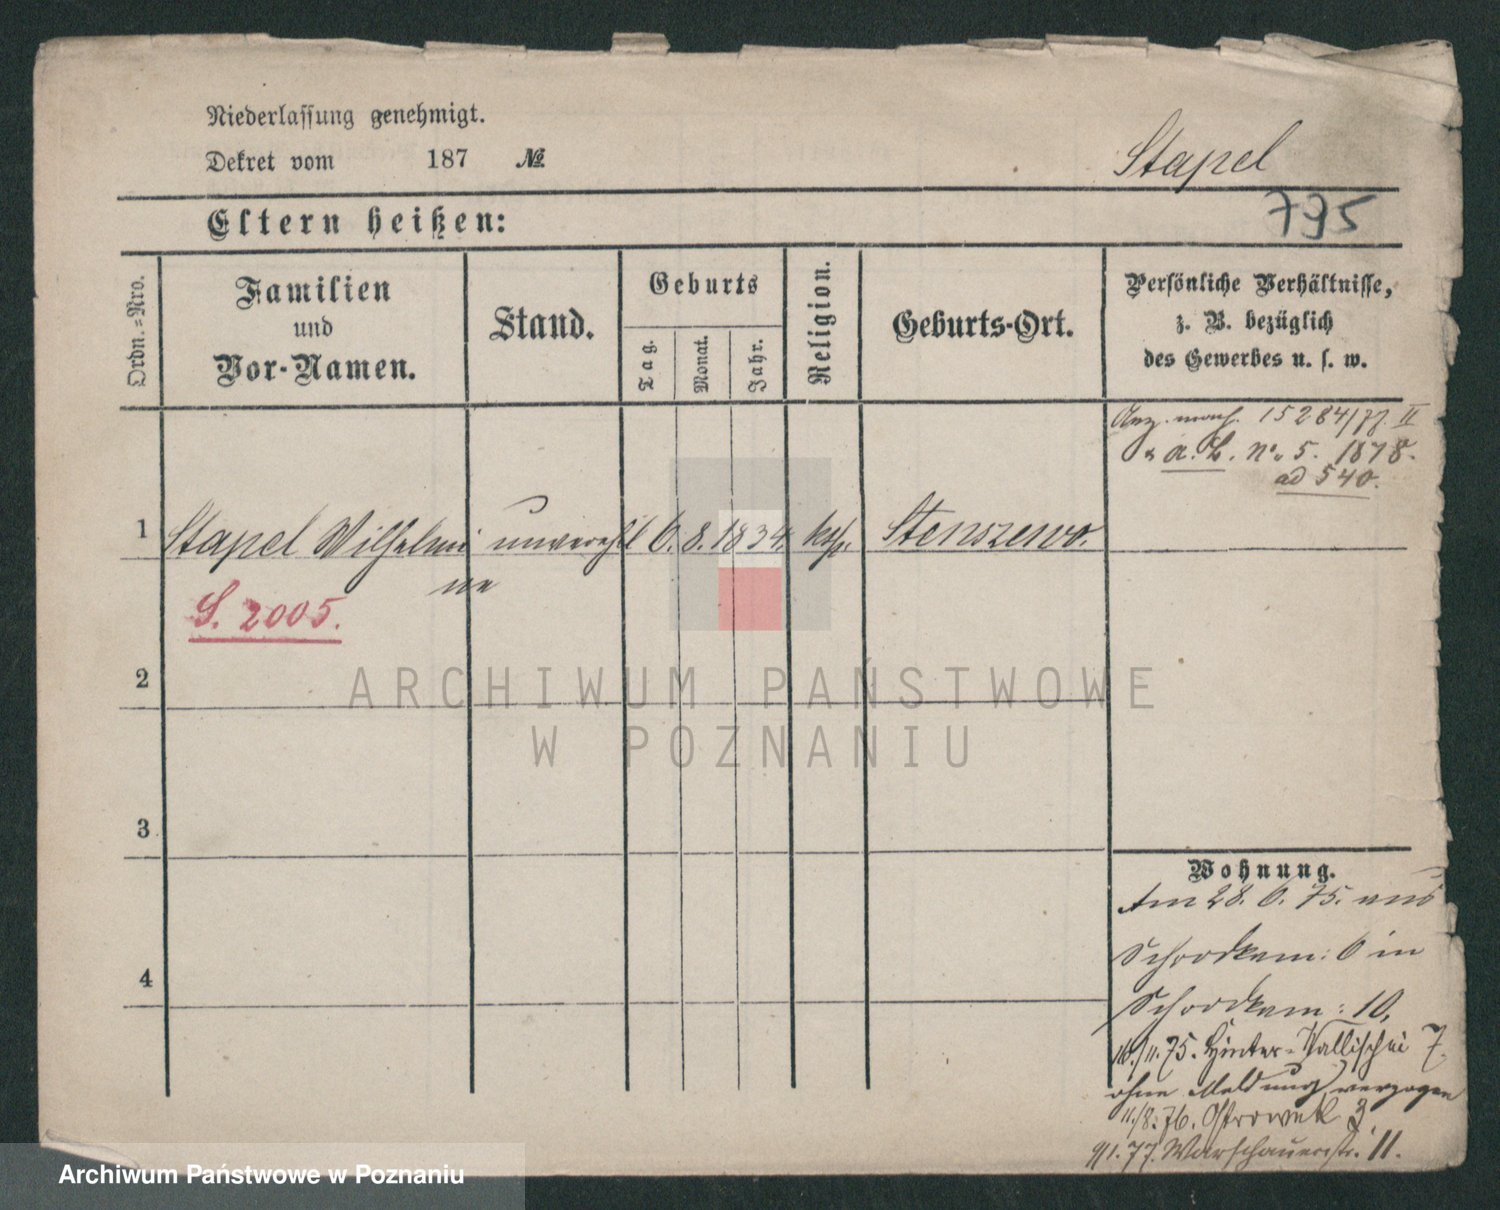 Niederlassung genehmigt.
Dekret vom 187 №
Stapel
Eltern heißen:
795
Ordn.=Nro.
Familien
und
Vor-Namen.
Stand.
Geburts
Tag.
Monat.
Jahr.
Religion.
Geburts-Ort.
Persönliche Verhältnisse,
z. B. bezüglich
des Gewerbes u. s. w.
15284/77. II
a. L. No. 5. 1878.
ad 540.
1 Stapel Wilhelmi unverehl 6. 8. 1834. kth. Stenszewo.
ne
S. 2005.
2
3
4
Wohnung.
Am 28. 6. 75. aus
Schrodkam: 6 in
Schrodkam: 10,
/11. 75. Hinter-Wallischei 7.
ohne Meldung verzogen
11./8. 76. Ostrowek 3.
9/1. 77. Warschauerstr. 11.
ARCHIWUM PAŃSTWOWE
W POZNANIU
Archiwum Państwowe w Poznaniu